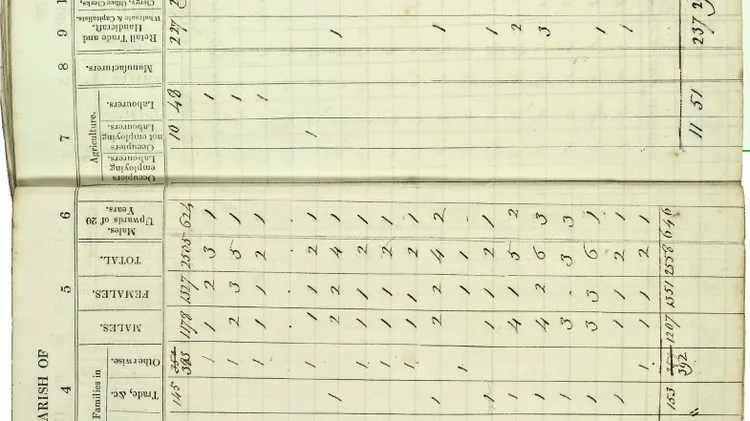 ARISH OF
4 5 6 7 8 9
Families in
Trade, &c.
Otherwise.
MALES.
FEMALES.
TOTAL.
Males.
Upwards of 20
Years.
Agriculture.
Occupiers
employing
Labourers.
Occupiers
not employing
Labourers.
Labourers.
Manufacturers.
Retail Trade and
Handicraft.
Wholesale & Capitalists,
Clergy, Office Clerks,
145 393 1178 1327 2505 624 10 48 227
1 1 2 3 1 1
1 2 3 5 1 1
1 1 1 2 1 1
1 1 1 2 1 1
1 2 2 4 1 1
1 1 1 2 1
1 1 1 2 1
1 1 1 2 1
1 2 2 4 2 1
1 1 1
1 1 1 2 1 1
1 4 1 5 2 2
1 4 2 6 3 3
1 3 3 3
1 3 3 6 1 1
1 1 1 2 1 1
1 1 1 2 1
153 392 1207 1351 2558 646 11 51 237